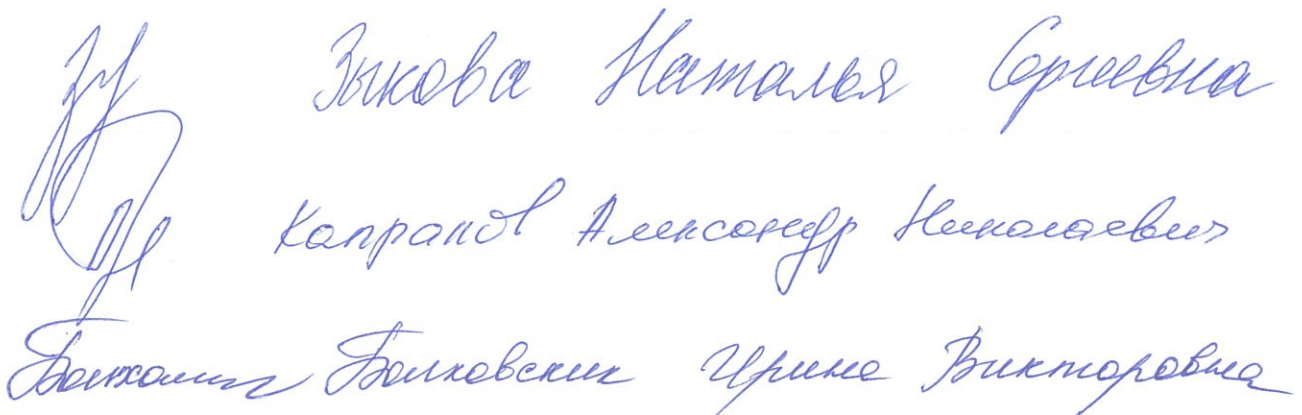 Зыкова Наталья Сергеевна
Капранов Александр Николаевич
Балховских Ирина Викторовна